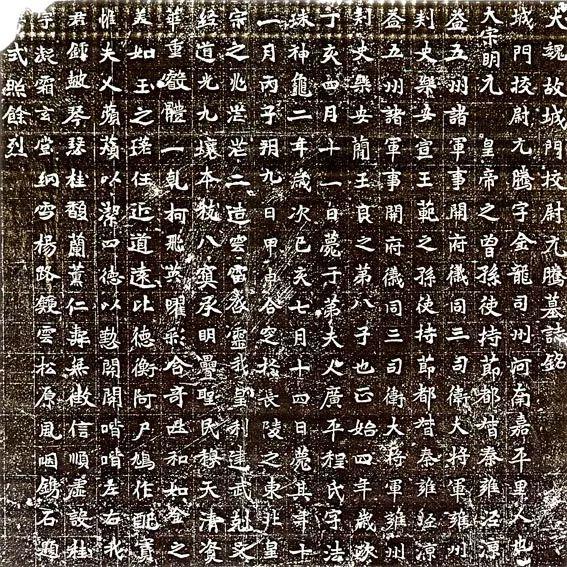 大魏故城門校尉元騰墓誌銘
城門校尉元騰字金龍司州河南嘉平里人也
大宗明元皇帝之曾孫使持節都督秦雍涇涼
益五州諸軍事開府儀同三司衛大將軍雍州
刺史樂安宣王範之孫使持節都督秦雍涇涼
益五州諸軍事開府儀同三司衛大將軍雍州
刺史樂安簡王良之第八子也正始四年歲次
丁亥四月十一日薨于第夫人廣平程氏字法
珠神龜二年歲次己亥七月十四日薨其年十
一月丙子朔九日甲申合窆於長陵之東北皇
宗之兆茫茫二造雲雷啓靈我皇利建武剋文
經道光九壤本枝八冥承明疊聖民穆天清資
華重嶽體一乾柯飛英曜彩含奇吐和如金之
美如玉之瑳任近道遠比德衡阿尸鳩作配賓
惟夫人蘋蘩以潔四德以懃閨闈喈喈左右我
君鐘鼓琴瑟桂馥蘭薰仁壽無徵信順虛設桂
宇凝霜玄堂網雪楊路鏁雲松原風咽鐫石題
式照餘烈